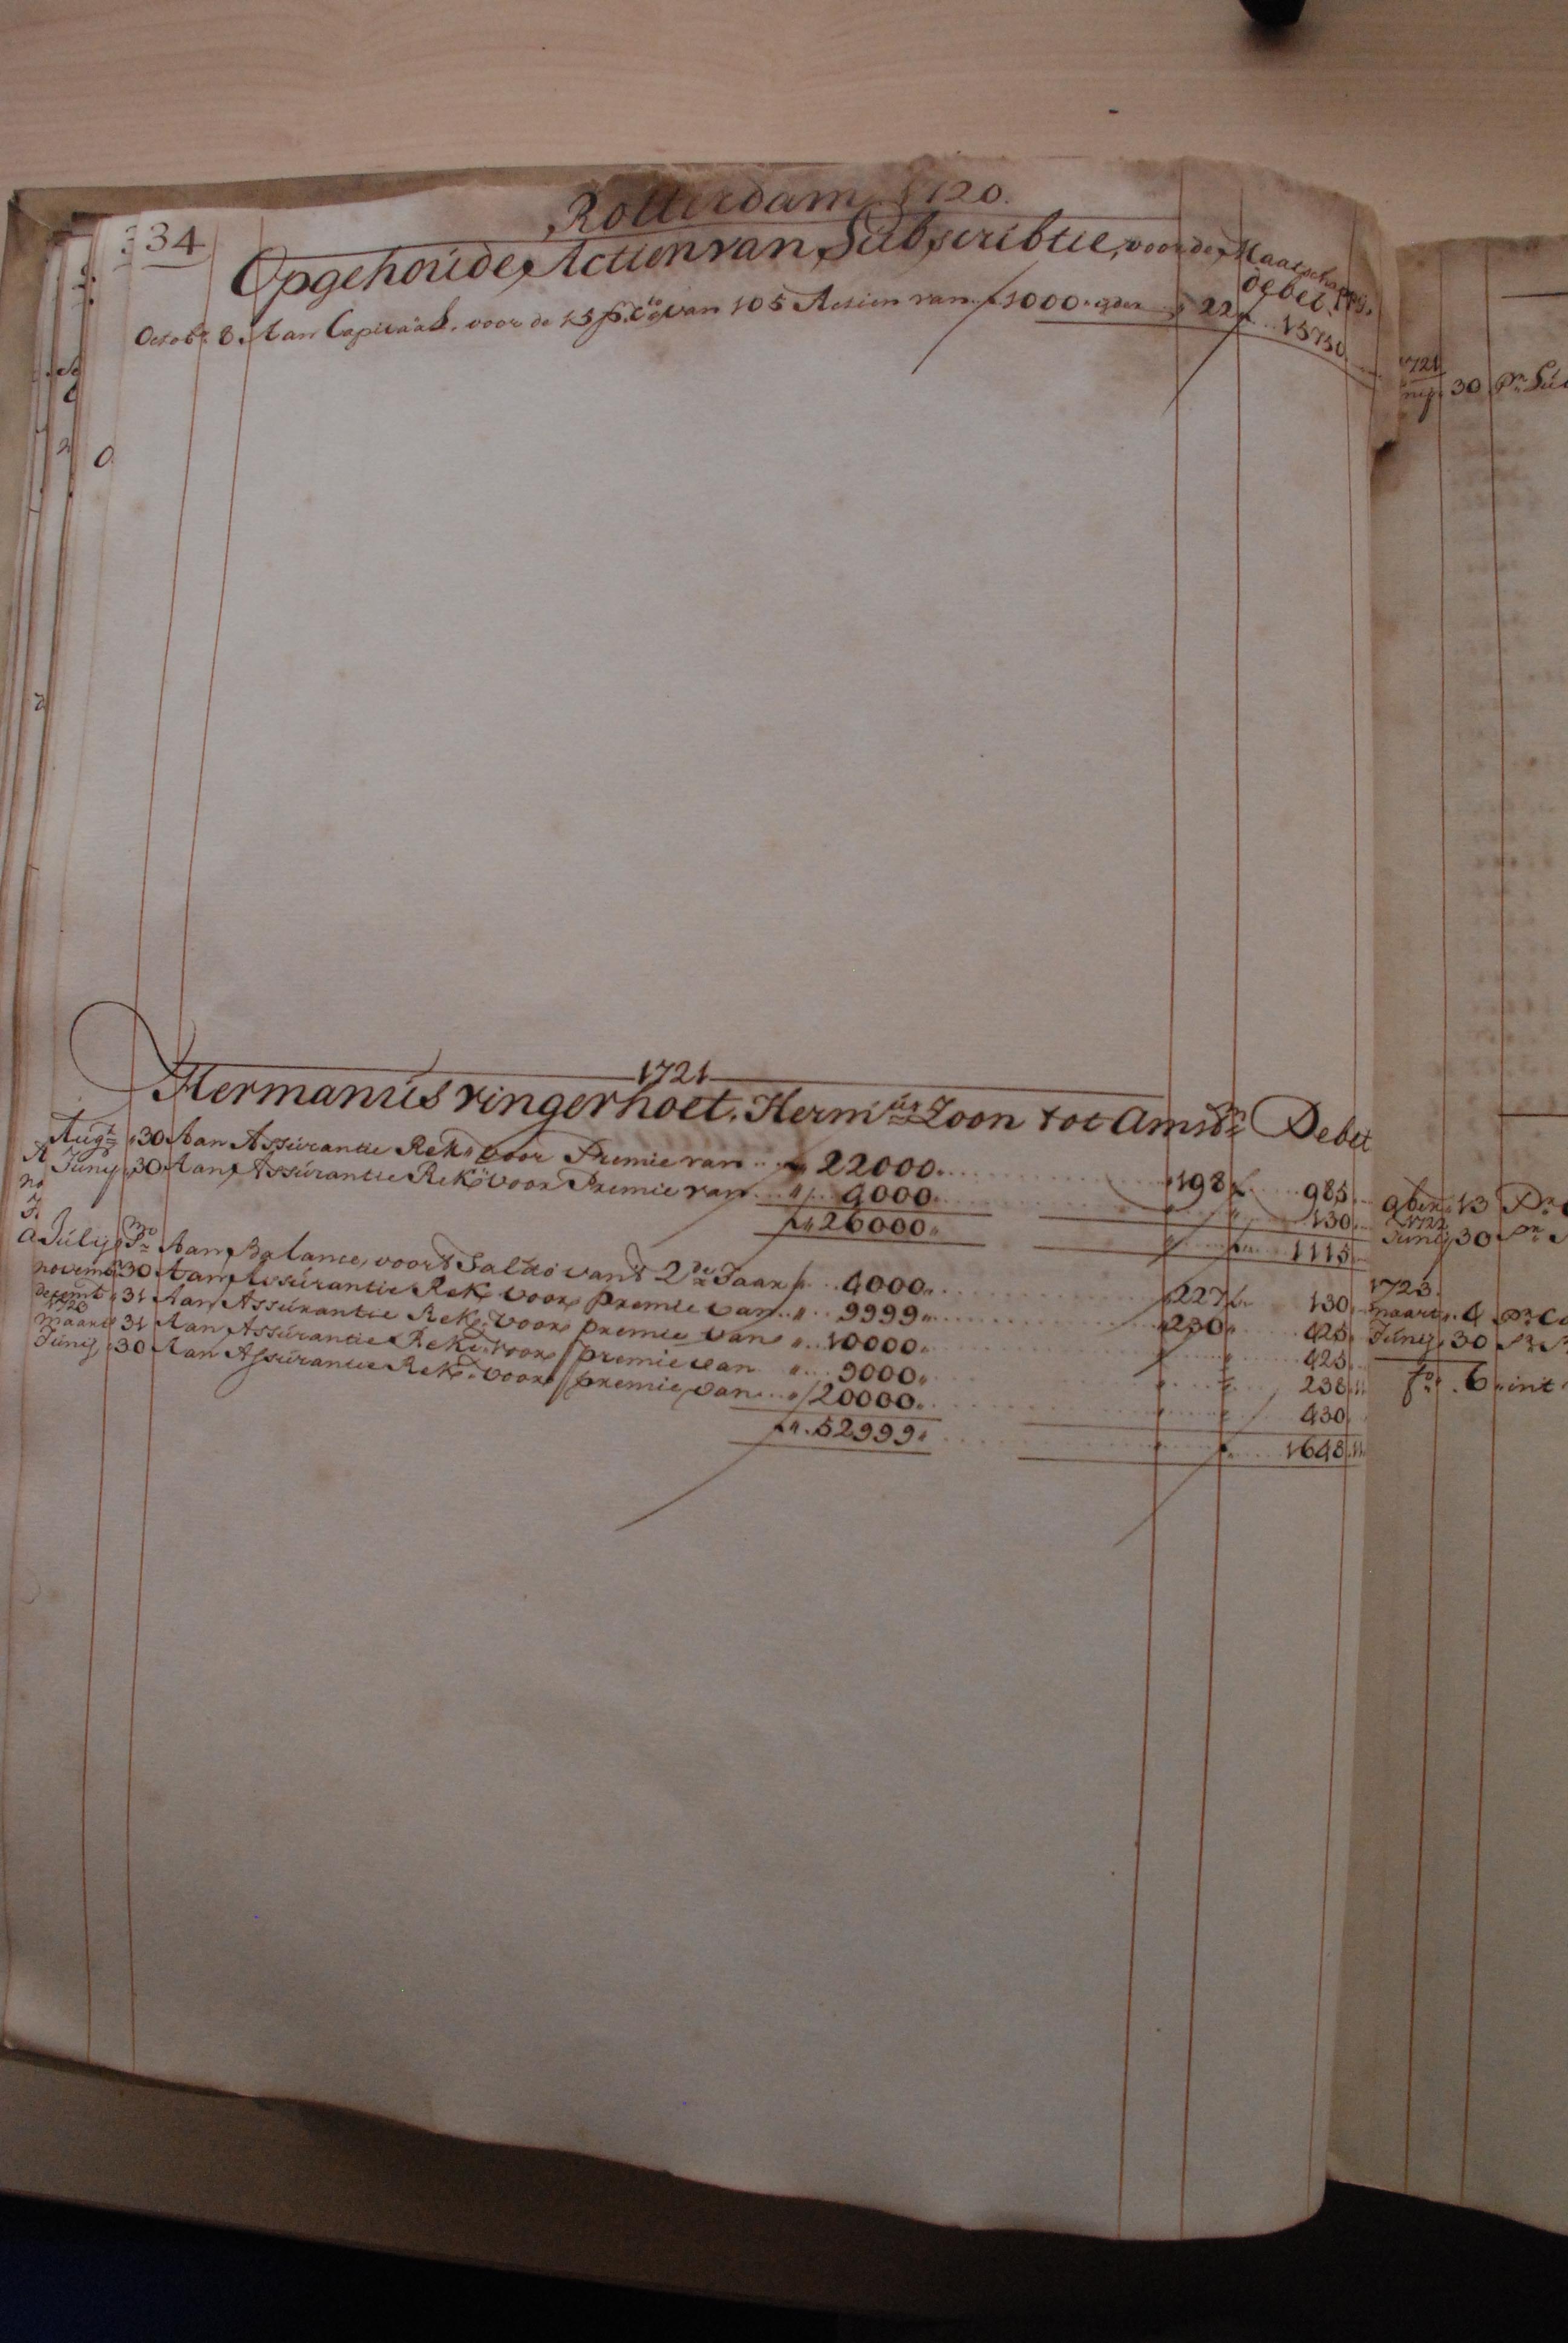 34
Rotterdam 1720.
Opgehoúde Actien van Súbscribtie, voor de Maatschappij. debet.
Octobr. 8. Aan Capitaal. voor de 15 p.Cto van 105 Actien van f 1000 „ yder 22 15750
1721
Hermanús ringerhoet. Hermús Zoon tot Amstm Debet
Augt 30 Aan Assúrantie Rek. voor Premie van 22000 198 985
Júny 30 Aan Assúrantie Rek. voor Premie van 4000 130
26000 1115
Júlij Pmo Aan Balance, voor t Saldo van't 2de Jaar f 4000 227 130
novemb 30 Aan Assúrantie Rek voor premie van 9999 230 425
decemb 31 Aan Assúrantie Rek. voor premie van 10000 425
1723
maart 31 Aan Assúrantie Rek. voor premie van 9000 238
Júnij 30 Aan Assúrantie Rek. voor premie van 20000 430
52999 1648
1721
30 Pr
9ber 13 Pr
1722
Júnij 30 Pr
1723
maart 4 Pr
Júnij 30 Pr
fo. 6 int